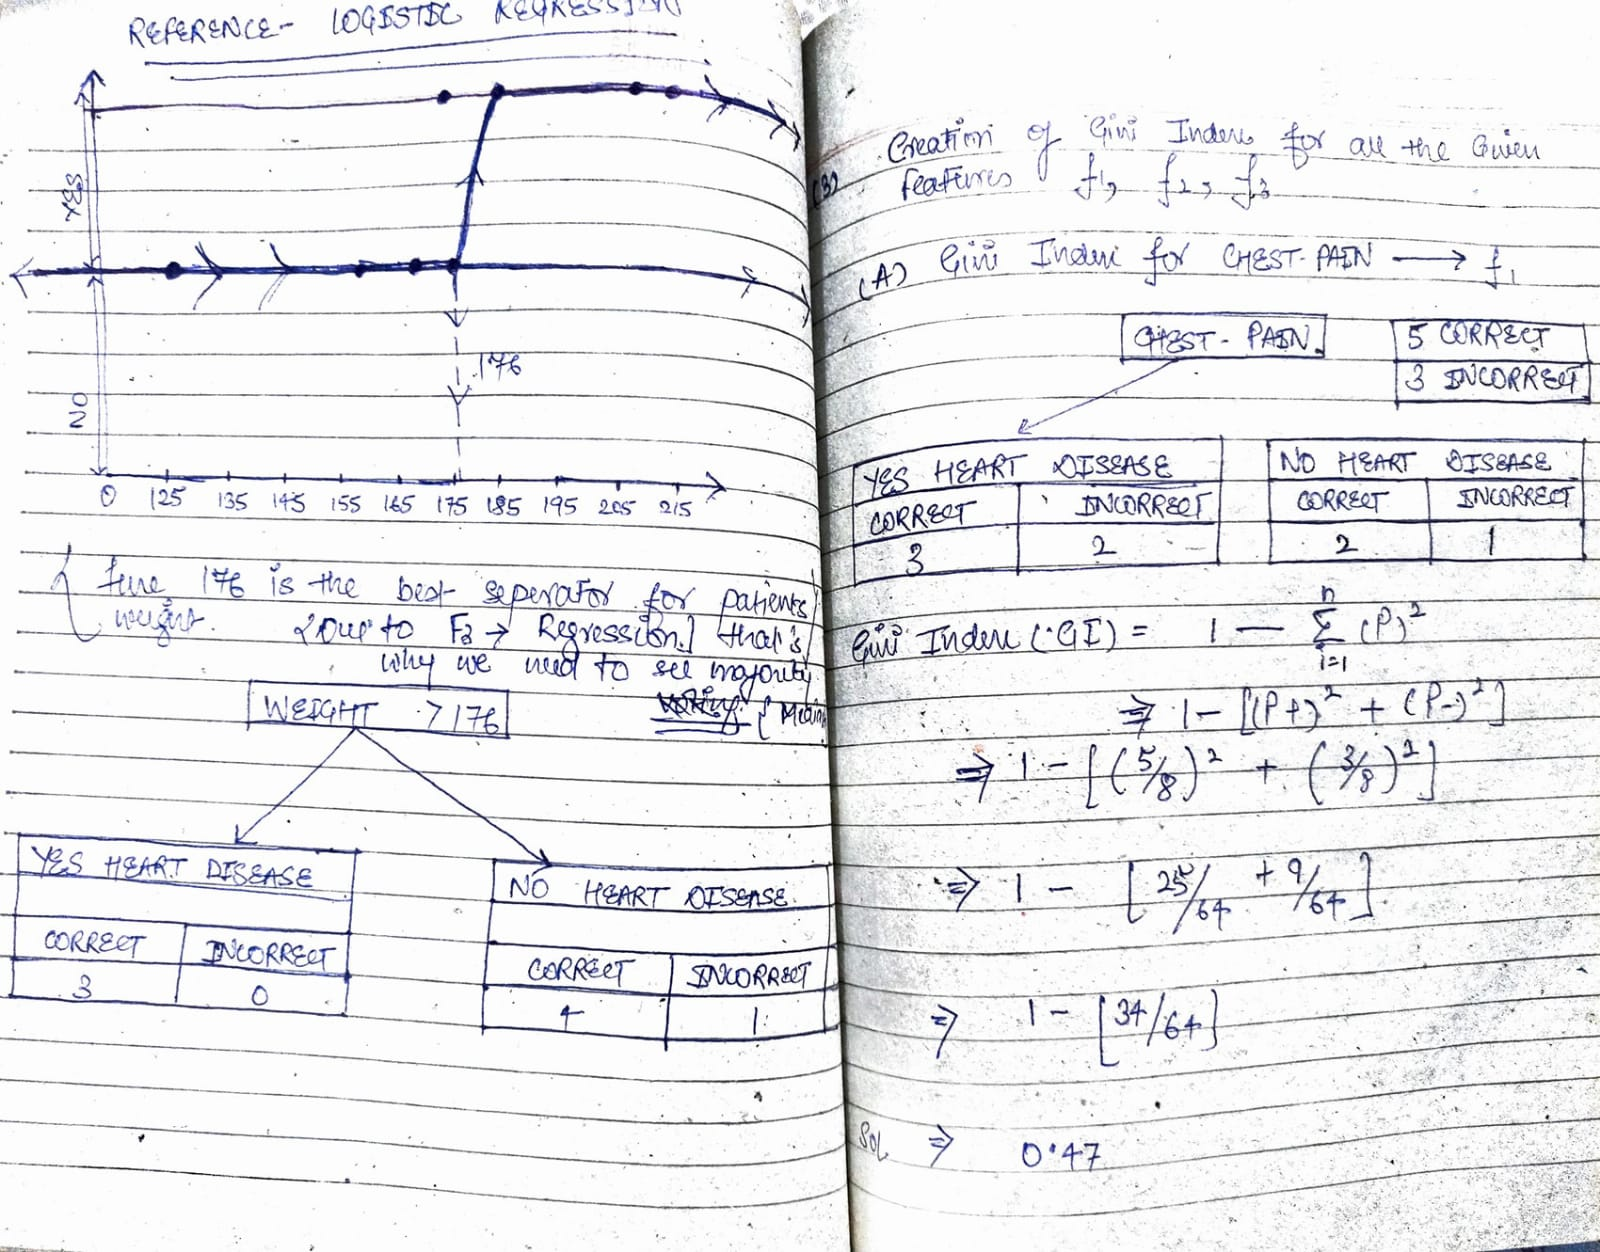 REFERENCE- LOGISTIC REGRESSION
YES
NO
176
0 125 135 145 155 165 175 185 195 205 215
Here 176 is the best seperator for patients
weight. {Due to F3 → Regression] that's
why we need to see majority
{ Median
WEIGHT > 176
YES HEART DISEASE
CORRECT INCORRECT
3 0
NO HEART DISEASE
CORRECT INCORRECT
4 1
(3) Creation of Gini Index for all the Given
features f1, f2, f3
(A) Gini Index for CHEST-PAIN → f1
CHEST-PAIN
5 CORRECT
3 INCORRECT
YES HEART DISEASE
CORRECT INCORRECT
3 2
NO HEART DISEASE
CORRECT INCORRECT
2 1
Gini Index (GI) = 1 — n Σ i=1 (P)²
⇒ 1 - [(P+)² + (P-)²]
⇒ 1 - [(5/8)² + (3/8)²]
⇒ 1 - [25/64 + 9/64]
⇒ 1 - [34/64]
Sol ⇒ 0.47